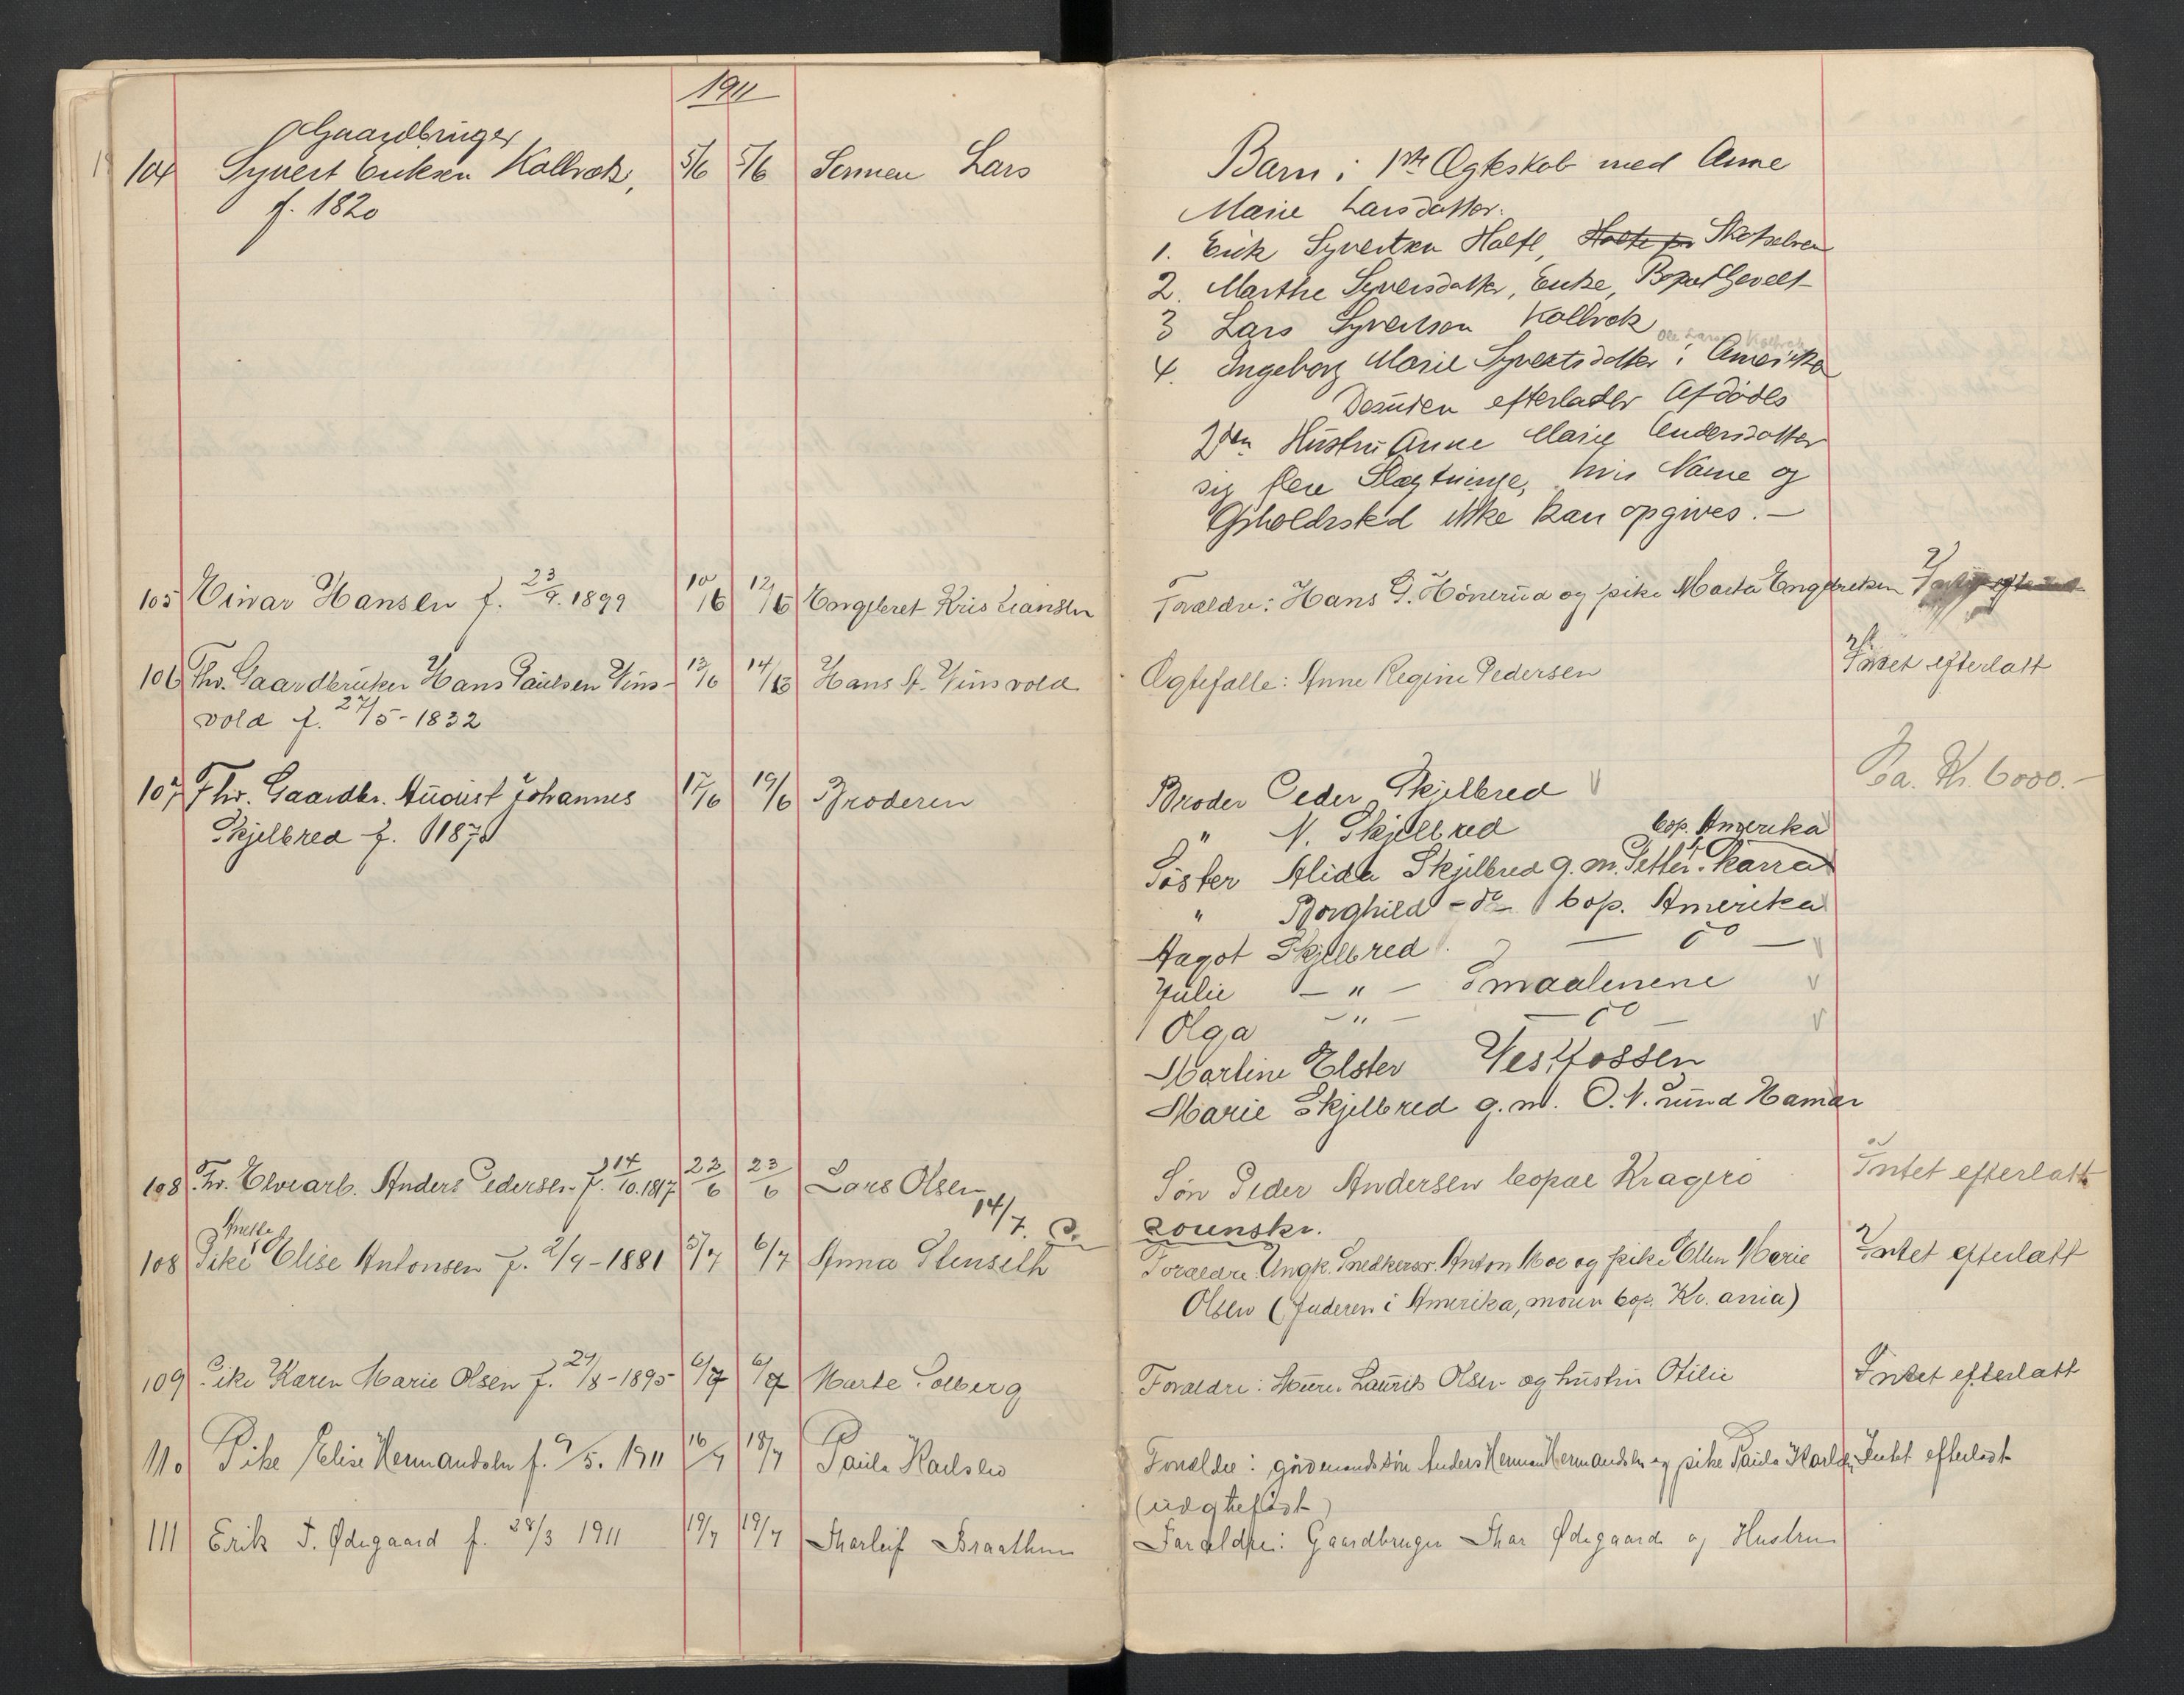 1911
Gaardbruger
104 Syvert Eriksen Kollrok, 5/6 5/6 Sønnen Lars
f. 1820
105 Einar Hansen f. 23/9. 1899 10/6 12/6 Engebret Kristiansen
106 Fhv. Gaardbruker Hans Paulsen Vins- 13/6 14/6 Hans A. Vinsvold
vold f. 27/5-1832
107 Fhv. Gaardbr. August Johannes 17/6 19/6 Broderen
Skjelbred f. 187
108 Fv. Elvearb. Anders Pedersen f. 14/10.1817 22/6 23/6 Lars Olsen
14/7.
108 Pike Elise Antonsen f. 2/9-1881 5/7 6/7 Anna Stenseth
109 Pike Karen Marie Olsen f. 29/8-1895 6/7 6/7 Marte Solberg
110 Pike Elise Hermandsen f. 9/5. 1911 16/7 18/7 Paula Karlsen
111 Erik T. Ødegaard f. 28/3 1911 19/7 19/7 Thorleif Braathen
Barn i 1ste Ægteskab med Anne
Marie Larsdatter.
1. Erik Syvertsen Holte, Holte Skotselven
2. Marthe Syversdatter, Enke,
3 Lars Syvertsen Kollrok
Ole Larsen Kollrok
4. Ingeborg Marie Syvertsdatter i Amerika
Desuden efterlader Afdødes
2den Hustru Anne Marie Andersdatter
sig flere Slægtninge, hvis Navne og
Opholdssted ikke kan opgives. -
Forældre: Hans G. Hönerud og pike Marta Engebretsen
Ægtefælle: Anne Regine Pedersen Intet efterlatt
Broder Peder Skjelbred V Ca. Kr. 6000.-
" N. Skjelbred bop. Amerika
Söster Alida Skjelbred g. m. Petter Karra
" Borghild - do - bop. Amerika
Aagot Skjelbred. - do -
Julie - " - Smaalenene V
Olga - " - - do - V
Martine Elster Vestfossen
Marie Skjelbred g. m. O. N. Lund Hamar
Sön Peder Andersen bopæl Kragerö Intet efterlatt
Forældre Ungk. Snedkersv. Anton Moe og pike Ellen Marie Intet efterlatt
Olsen (faderen i Amerika, moren bop. Kr.ania)
Forældre: Murer Laurits Olsen og hustru Otilie Intet efterlatt
Forældre: gårdmandssön Anders Herman Hermandsen og pike Paula Karlsen Intet efterladt
(uægtefödt)
Forældre: Gaardbruger Thor Ødegaard og Hustru